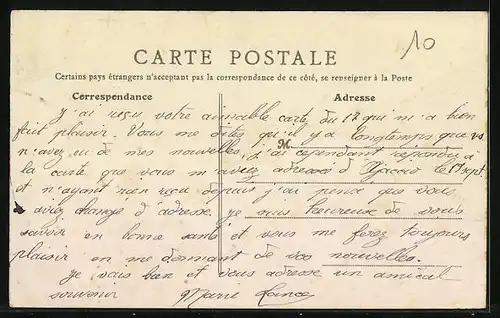 10
CARTE POSTALE
Certains pays étrangers n'acceptant pas la correspondance de ce côté, se renseigner à la Poste
Correspondance
Adresse
j'ai reçu votre aimable carte du 12 qui m'a bien
fait plaisir. Vous me dites qu'il y a longtemps que vs
M
n'avez eu de mes nouvelles, j'ai cependant répondu à
la carte que vous m'aviez adressée d'Ajaccio le 1er sept
et n'ayant rien reçu depuis j'ai pensé que vous
aviez changé d'adresse. je suis heureuse de vous
savoir en bonne santé et vous me ferez toujours
plaisir en me donnant de vos nouvelles.
Je vais bien et vous adresse un amical
souvenir Marie